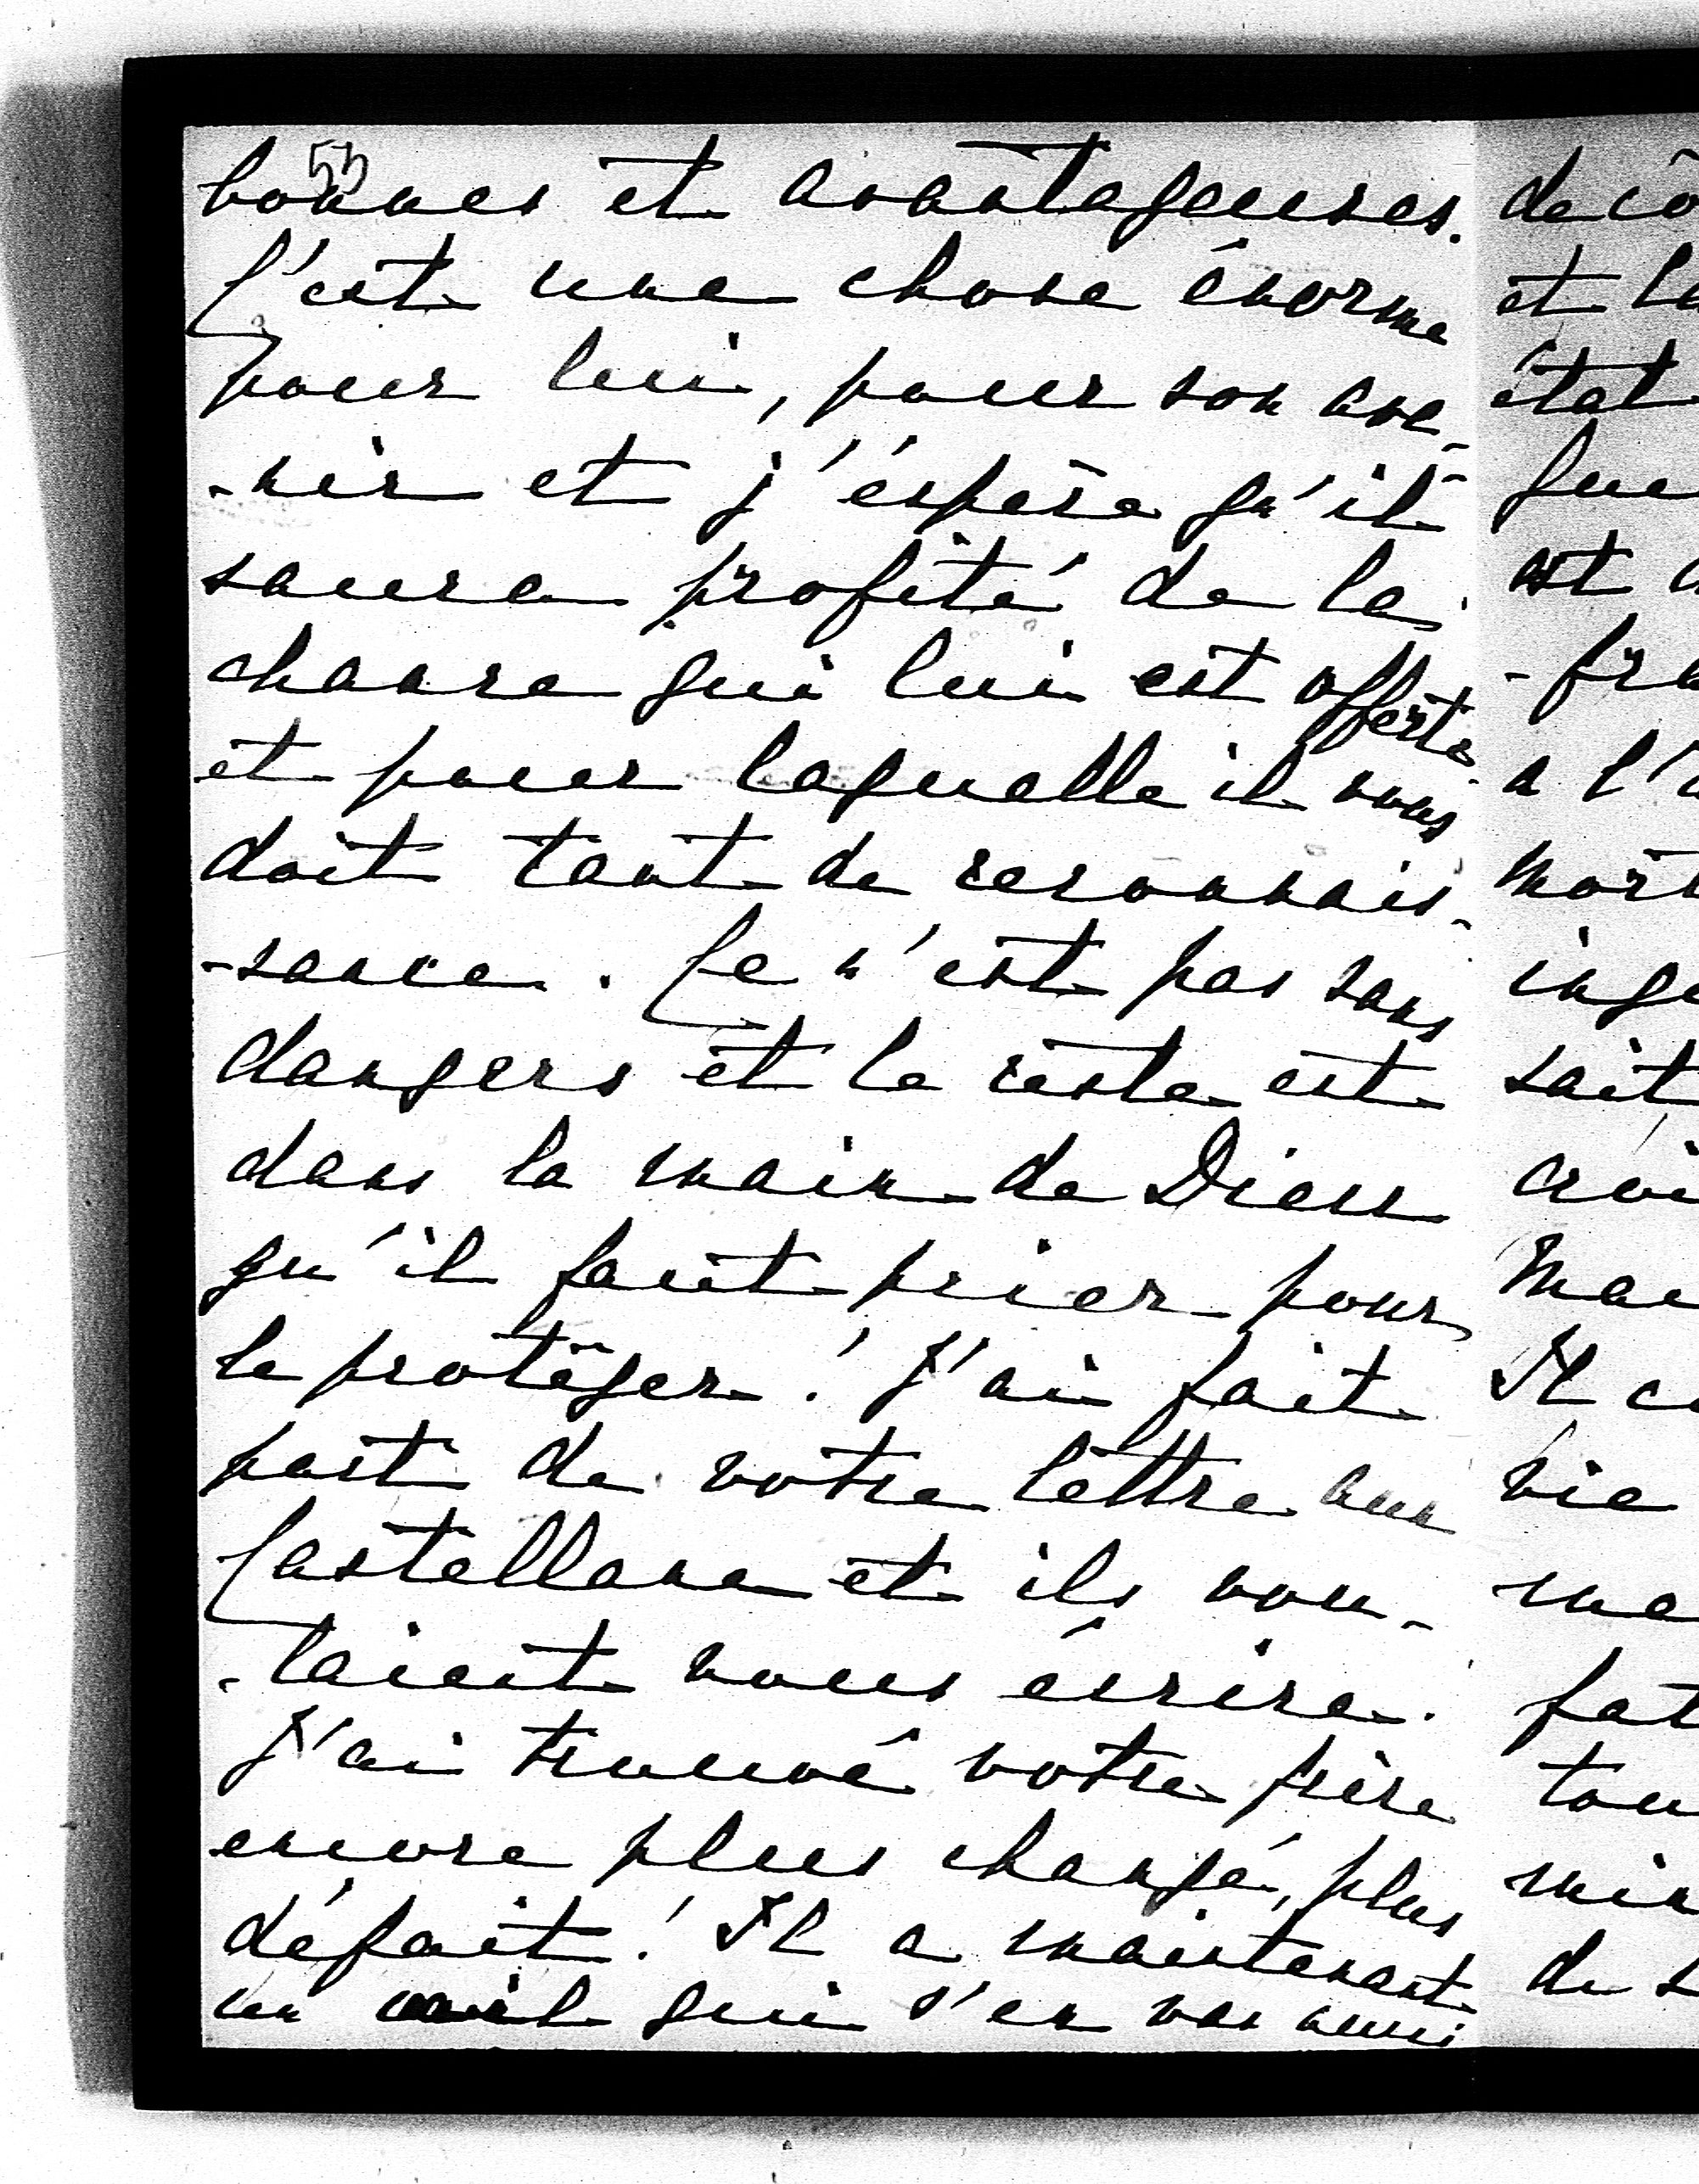 55
bonnes et avantageuses.
C'est une chose énorme
pour lui, pour son ave-
-nir et j'éspère qu'il
saura profité de la
chance qui lui est offerte
et pour laquelle il vous
doit tant de reconnais-
-sance. Ce n'est pas sans
dangers et le reste est
dans la main de Dieu
qu'il faut prier pour
le protéger! J'ai fait
part de votre lettre aux
Castellane et ils vou-
-laient vous écrire.
J'ai trouvé votre frère
encore plus changé, plus
défait! Il a maintenant
un œil qui s'en va aussi
de cô
et la
état
que
est
-fra
a l'a
mort
inge
sait
croi
Mai
Il
vie
me
fat
tou
min
de s